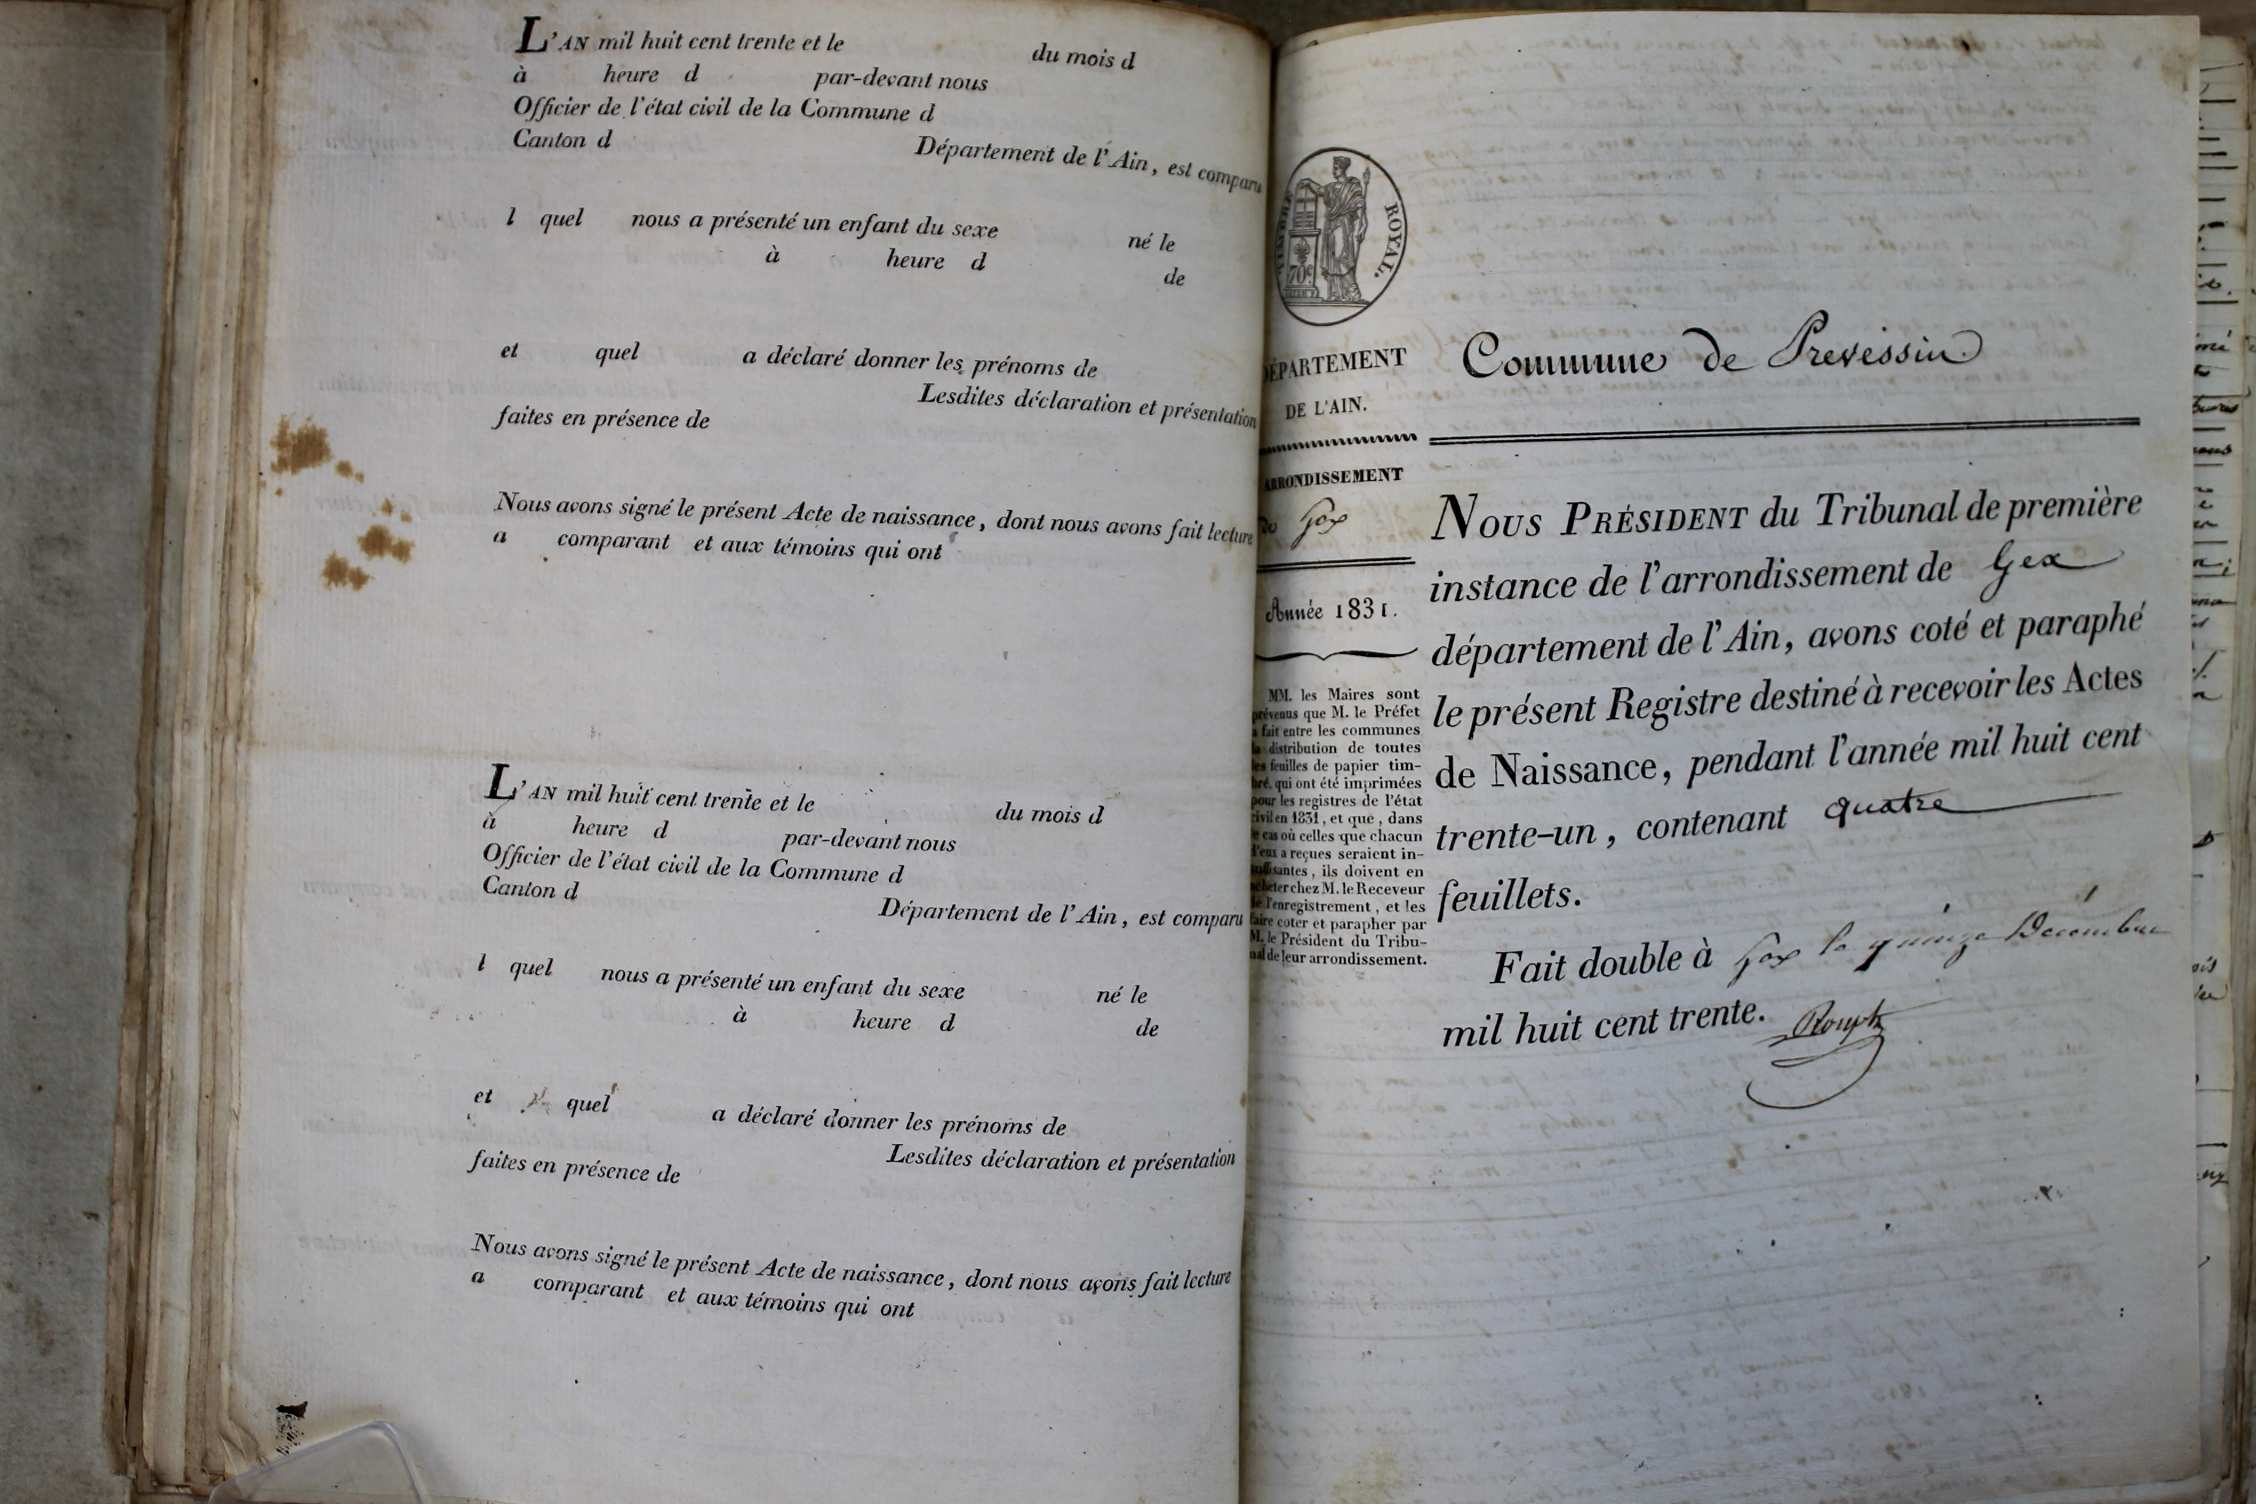 L'AN mil huit cent trente et le du mois d
à heure d par-devant nous
Officier de l'état civil de la Commune d
Canton d Département de l'Ain, est comparu
l quel nous a présenté un enfant du sexe né le
à heure d de
et quel a déclaré donner les prénoms de
Lesdites déclaration et présentation
faites en présence de
Nous avons signé le présent Acte de naissance, dont nous avons fait lecture
a comparant et aux témoins qui ont
L'AN mil huit cent trente et le du mois d
à heure d par-devant nous
Officier de l'état civil de la Commune d
Canton d Département de l'Ain, est comparu
l quel nous a présenté un enfant du sexe né le
à heure d de
et quel a déclaré donner les prénoms de
Lesdites déclaration et présentation
faites en présence de
Nous avons signé le présent Acte de naissance, dont nous avons fait lecture
a comparant et aux témoins qui ont
TIMBRE ROYAL.
70c
DÉPARTEMENT
DE L'AIN.
ARRONDISSEMENT
de Gex
Année 1831.
MM. les Maires sont
prévenus que M. le Préfet
a fait entre les communes
la distribution de toutes
les feuilles de papier tim-
bré, qui ont été imprimées
pour les registres de l'état
civil en 1831, et que, dans
le cas où celles que chacun
d'eux a reçues seraient in-
suffisantes, ils doivent en
acheter chez M. le Receveur
de l'enregistrement, et les
faire coter et parapher par
M. le Président du Tribu-
nal de leur arrondissement.
Commune de Prevessin
NOUS PRÉSIDENT du Tribunal de première
instance de l'arrondissement de Gex
département de l'Ain, avons coté et paraphé
le présent Registre destiné à recevoir les Actes
de Naissance, pendant l'année mil huit cent
trente-un, contenant quatre
feuillets.
Fait double à Gex le quinze Décembre
mil huit cent trente.